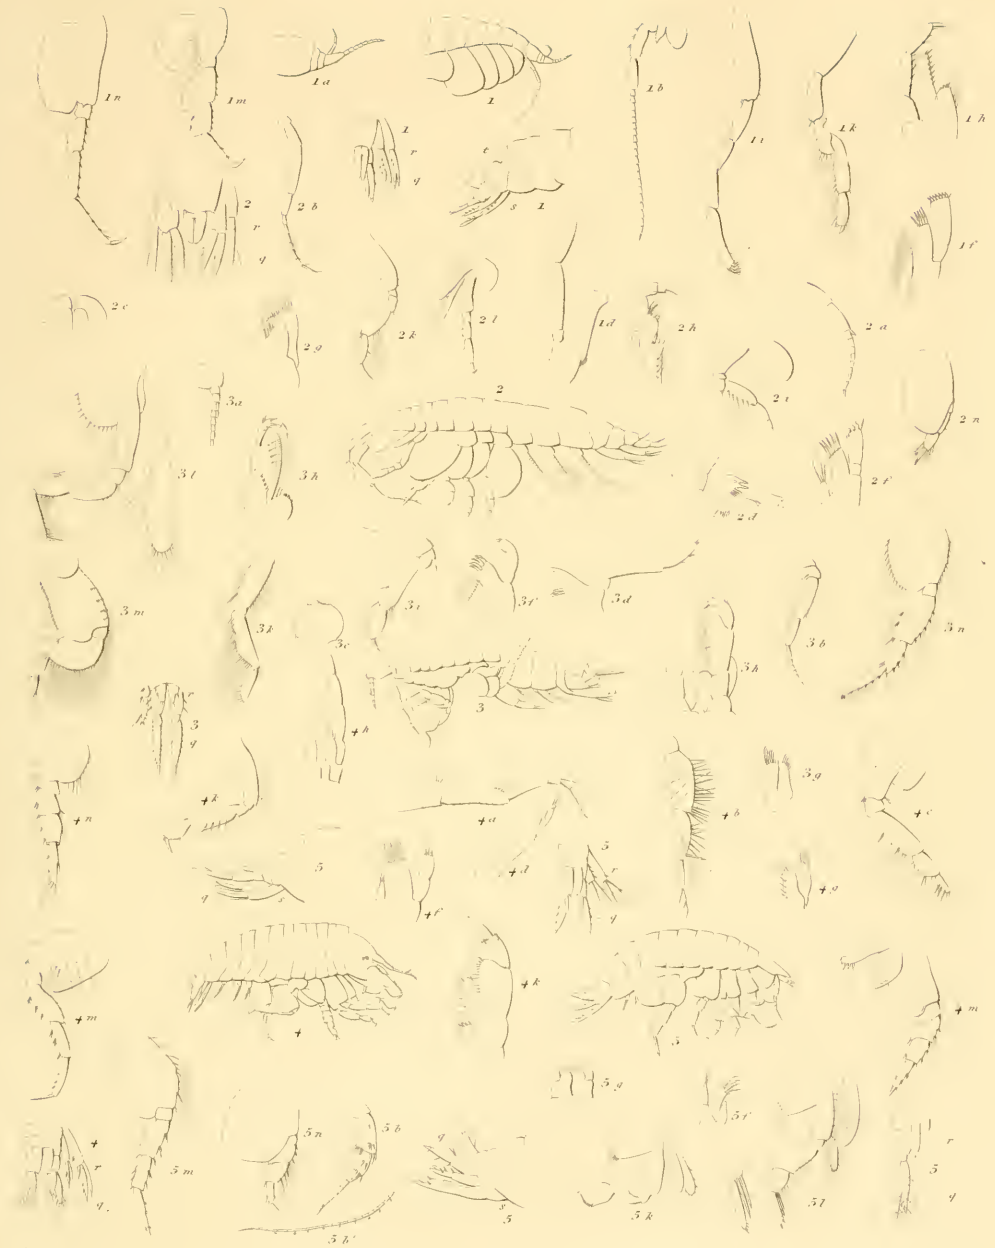 1 n
1 m
1 a
1
1 b
1 i
1 k
1 h
1
r
q
t
s
1
2
r
q
2 b
1 f
2 c
2 g
2 k
2 l
1 d
2 h
2 a
3 a
2
2 i
2 n
3 l
3 h
2 f
2 d
3 m
3 k
3 c
3 i
3 f
3 d
3 b
3 n
3
r
q
4 h
3
3 h
4 n
4 k
4 a
4 b
3 g
4 c
5
q
s
4 f
4 d
5
r
q
4 g
4 m
4
4 k
5
4 m
5 g
5 f
4
r
q
5 m
5 n
5 b
5 b'
q
s
5
5 k
5 l
r
5
q